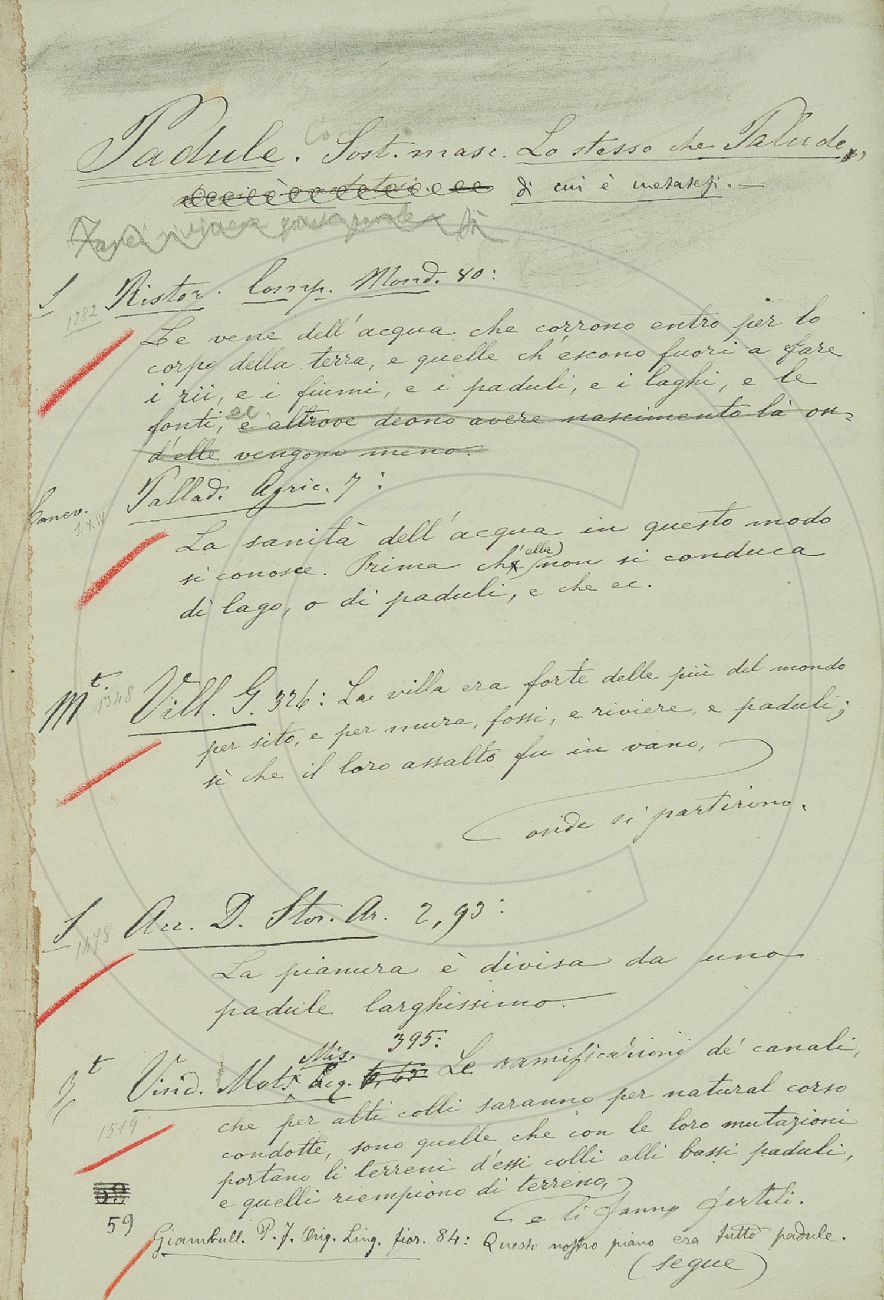 Padule. Sost. masc. Lo stesso che Palude,
di cui è metatesi.—
S Ristor. Comp. Mond. 80:
1282
Le vene dell'acqua che corrono entro per lo
corpo della terra, e quelle ch'escono fuori a fare
i rii, e i fiumi, e i paduli, e i laghi, e le
fonti, ec e altrove deono avere nascimento là on=
d'elle vengono meno.
Pallad. Agric. 7:
S. XIV
La sanità dell'acqua in questo modo
si conosce. Prima ch'ella non si conduca
di lago, o di paduli, e che ec.
Mt. 1348 Vill. G. 326: La villa era forte delle più del mondo
per sito, e per mura, fossi, e riviere, e paduli;
sì che il loro assalto fu in vano,
onde si partirono.
S Acc. D. Stor. Ar. 2, 93:
1478
La pianura è divisa da uno
padule larghissimo.—
Mis. 395:
t Vinc. Mot. Acq. Le ramificazioni de' canali,
1519
che per alti colli saranno per natural corso
condotte, sono quelle che con le loro mutazioni
portano li terreni d'essi colli alli bassi paduli,
e quelli riempiono di terreno,
e li fanno fertili.
59
Giambull. P. F. Orig. Ling. fior. 84: Questo nostro piano era tutto padule.
(segue)